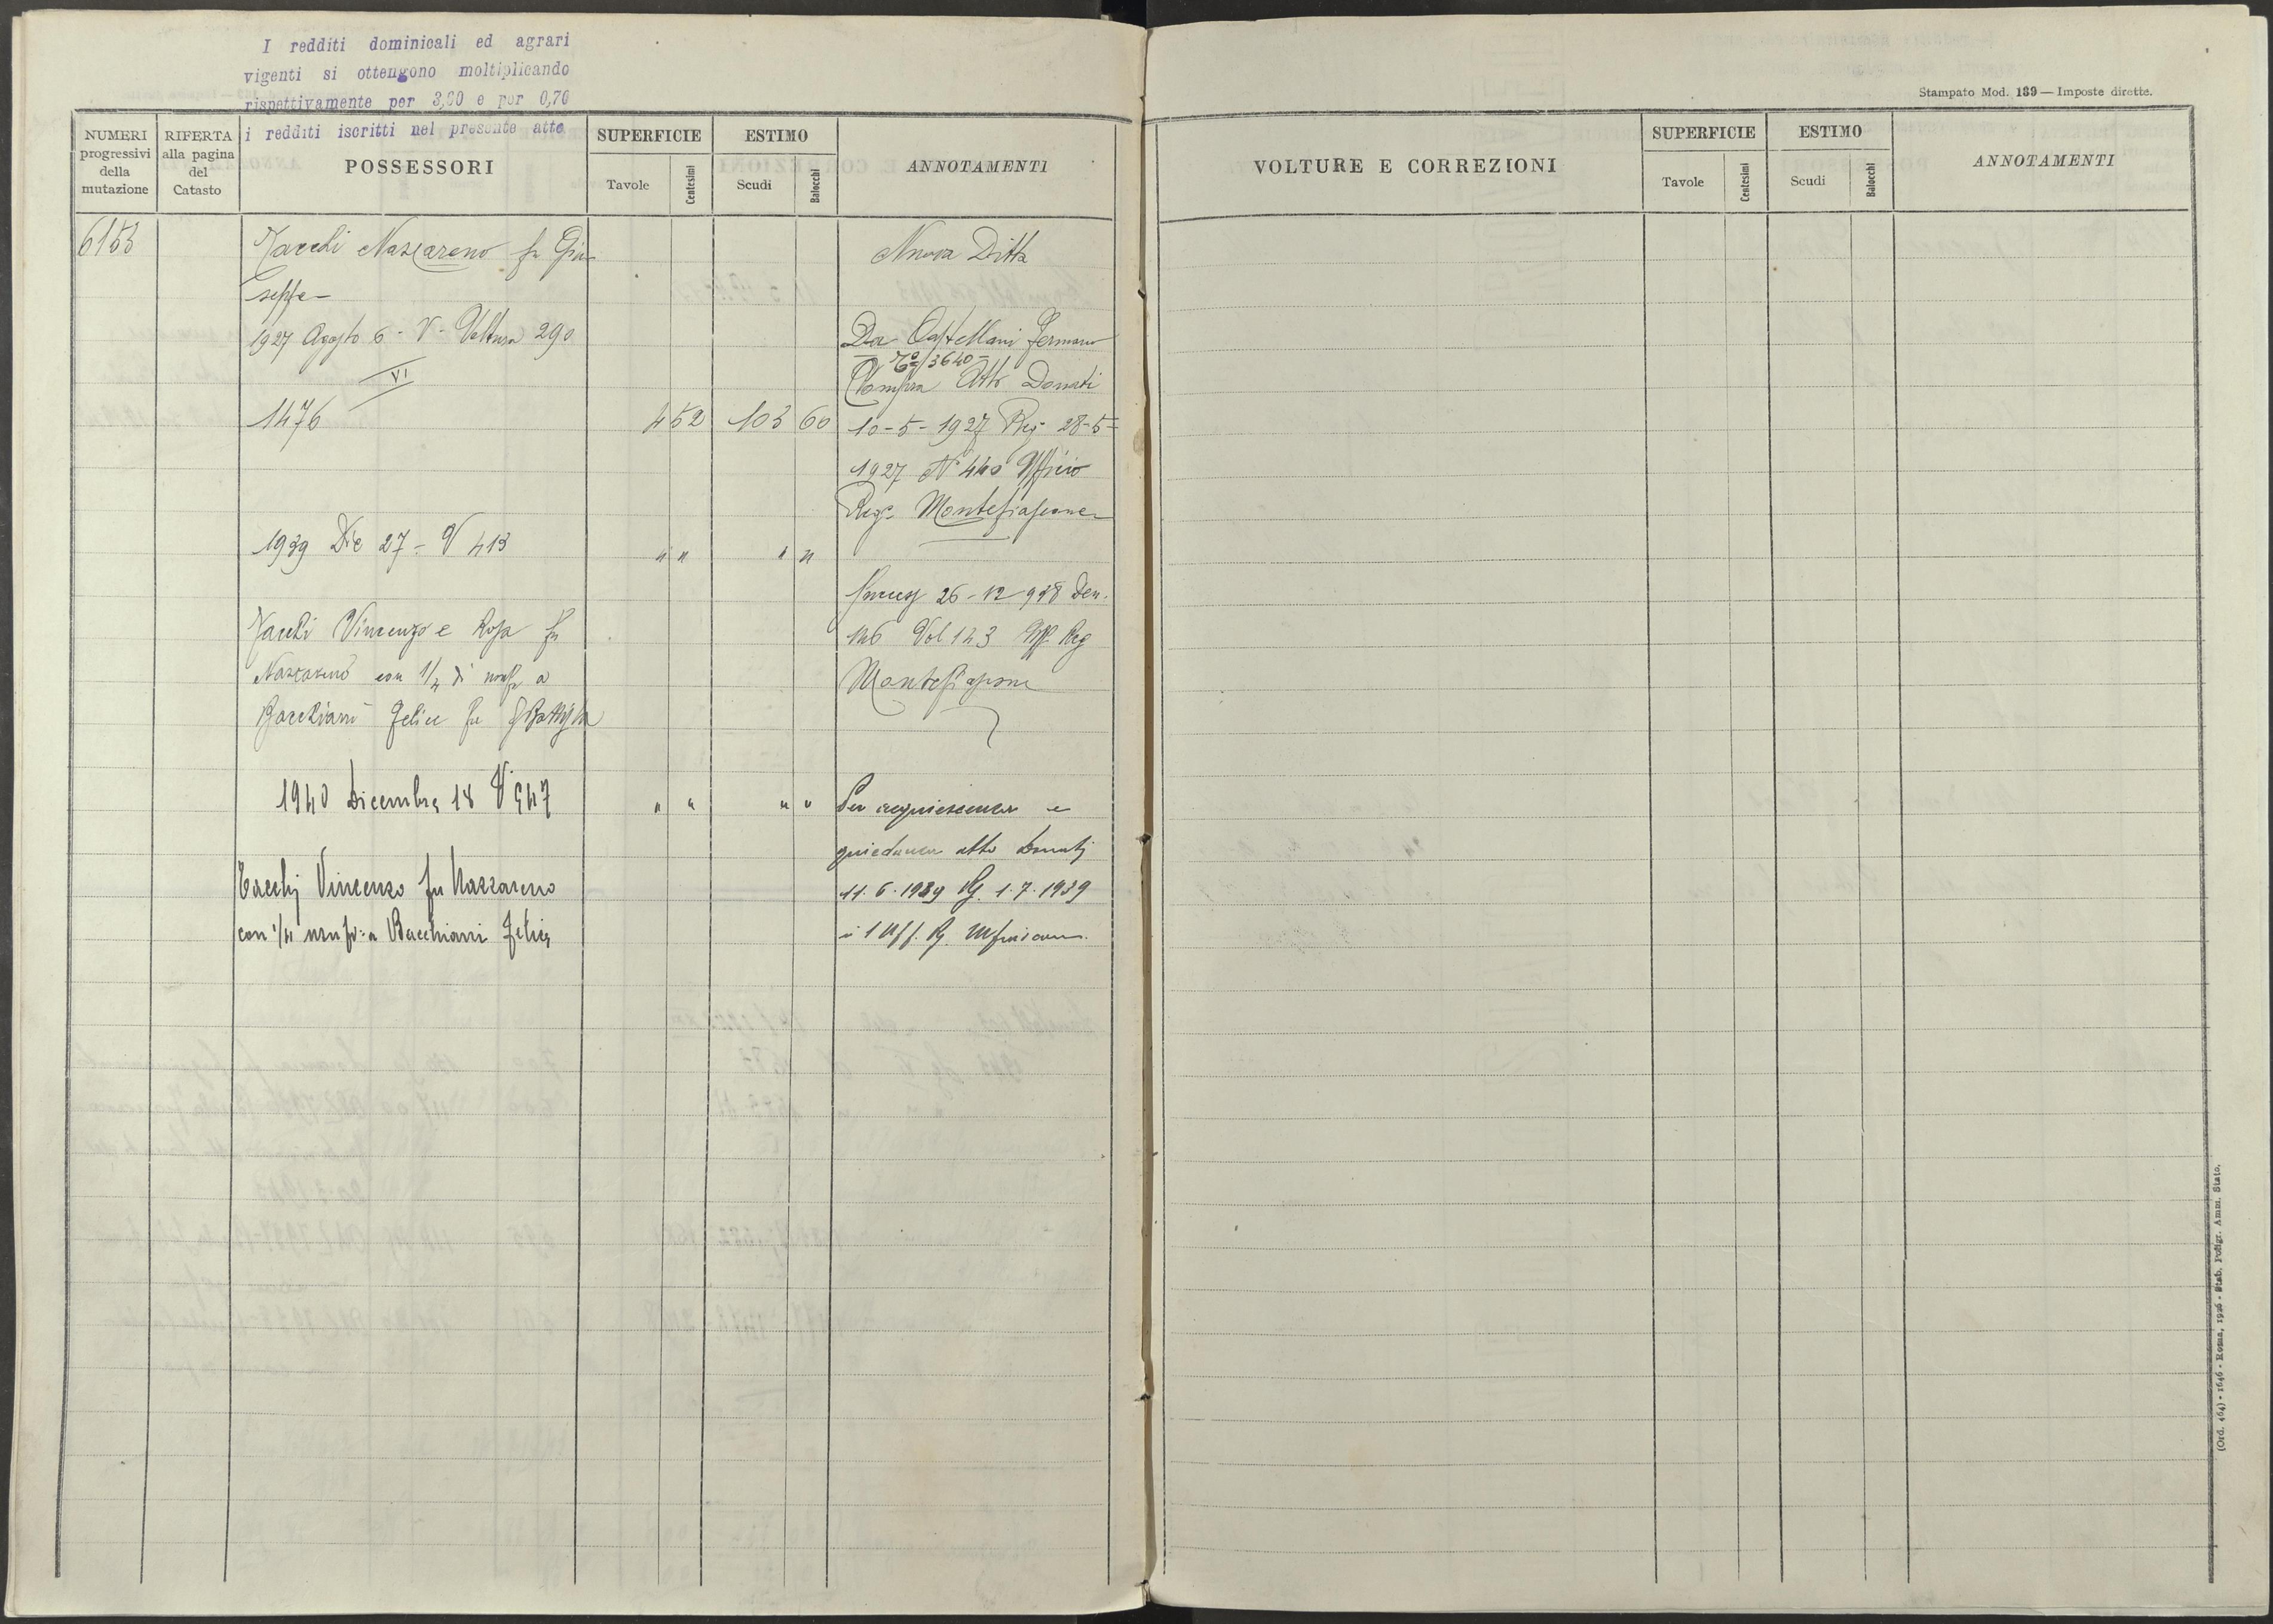 I redditi dominicali ed agrari
vigenti si ottengono moltiplicando
rispettivamente per 3,60 e per 0,70
i redditi iscritti nel presente atto
NUMERI
progressivi
della
mutazione
RIFERTA
alla pagina
del
Catasto
POSSESSORI
SUPERFICIE
Tavole
Centesimi
ESTIMO
Scudi
Baiocchi
ANNOTAMENTI
6153
Tacchi Nazzareno fu Giu-
seppe-
1927 Agosto 6 - V - Voltura 290
VI
1476
4 52 103 60
1939 Dic 27 - V 413
" " " "
Tacchi Vincenzo e Rosa fu
Nazzareno con 1/4 di usuf a
Bacchiani Felice fu GBattista
1940 Dicembre 18 V 547
" " " "
Tacchi Vincenzo fu Nazzareno
con 1/4 usuf: a Bacchiani Felice
Nuova Ditta
Da Castellani Fermano
3640
Compra Atto Donati
10-5-1927 Reg 28-5-
1927 N° 440 Ufficio
Reg. Montefiascone
Success 26-12 938 Den.
146 Vol 123 Uff Reg
Montefiascone
Per acquiescenza e
quiedanza atto Donati
11.6.1939 Rg. 1.7.1939
Uff. Rg.
Stampato Mod. 139 — Imposte dirette.
VOLTURE E CORREZIONI
SUPERFICIE
Tavole
Centesimi
ESTIMO
Scudi
Baiocchi
ANNOTAMENTI
(Ord. 464) - 1646 - Roma, 1926 - Stab. Poligr. Amm. Stato.